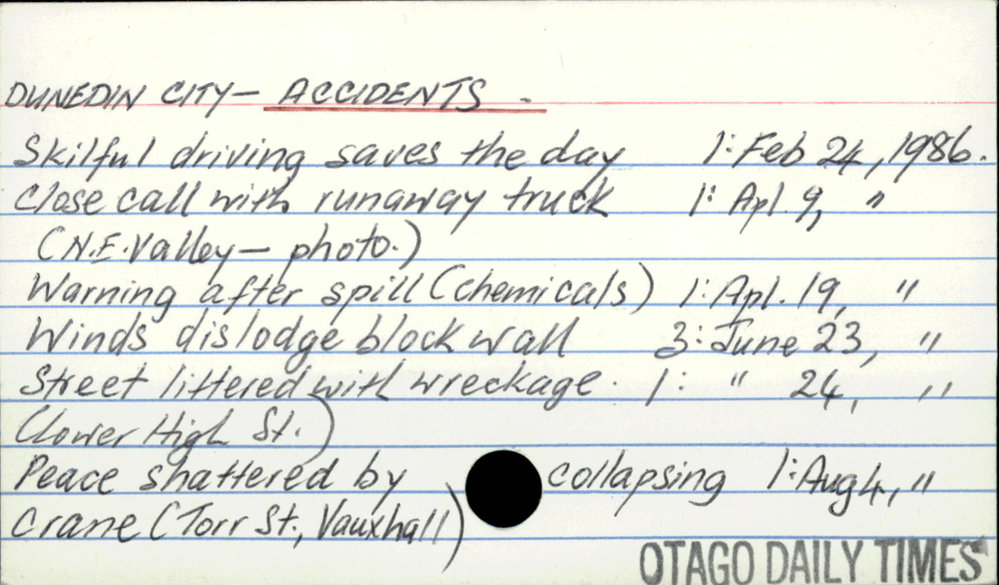 DUNEDIN CITY— ACCIDENTS.
Skilful driving saves the day 1: Feb 24, 1986.
Close call with runaway truck 1: Apl. 9, "
(N.E. Valley— photo.)
Warning after spill (chemicals) 1: Apl. 19, "
Winds dislodge block wall 3: June 23, "
Street littered with wreckage. 1: " 24, "
(lower High St.)
Peace shattered by collapsing 1: Aug 4, "
crane (Torr St., Vauxhall)
OTAGO DAILY TIMES